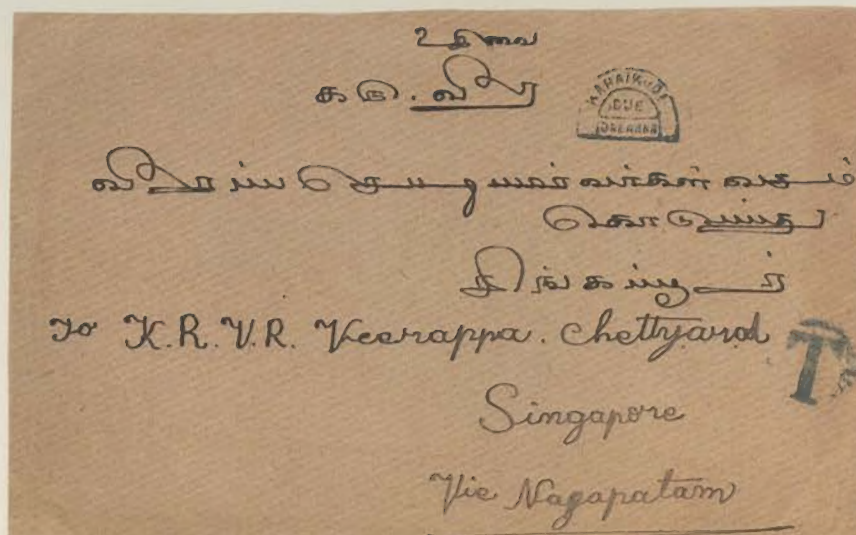 உ சிவமயம்
கரு. வீர
KARAIKUDI
DUE
வீரப்ப செட்டியாரவர்கள் வசம்
கொடுப்பது
சிங்கப்பூர்
To K.R.V.R. Veerappa. Chettyarod
T
Singapore
Vie Nagapatam